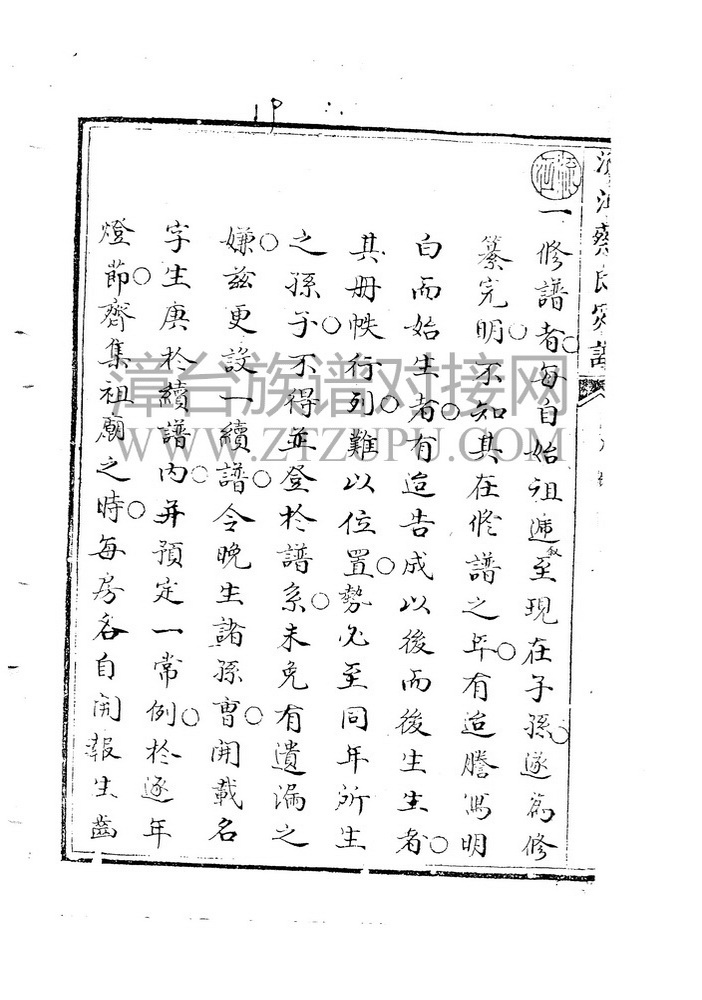 19
蔡氏
一修譜者。每自始祖遞叙至現在子孫。遂為修
纂完明。不知其在修譜之年。有迨謄寫明
白而始生者。有迨告成以後而後生生者。
其册帙行列。難以位置。勢必至同年所生
之孫子。不得並登於譜系。未免有遺漏之
嫌。兹更設一續譜。令晚生諸孫曹。開載名
字生庚於續譜內。并預定一常例。於逐年
燈節。齊集祖廟之時。每房各自開報生齒
漳台族谱对接网
WWW.ZTZUPU.COM